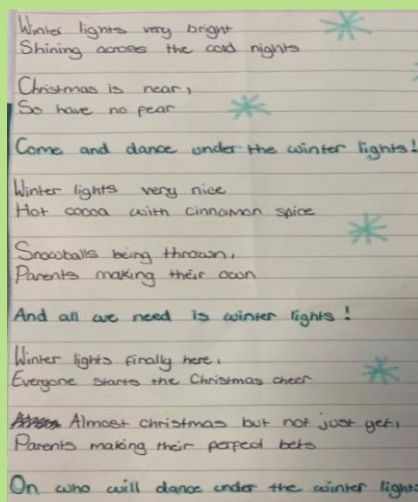 Winter lights very bright
Shining across the cold nights
Christmas is near,
So have no fear
Come and dance under the winter lights!
Winter lights very nice
Hot cocoa with cinnamon spice
Snowballs being thrown,
Parents making their own
And all we need is winter lights!
Winter lights finally here,
Everyone starts the Christmas cheer
Almost christmas but not just yet,
Parents making their perfect bets
On who will dance under the winter light